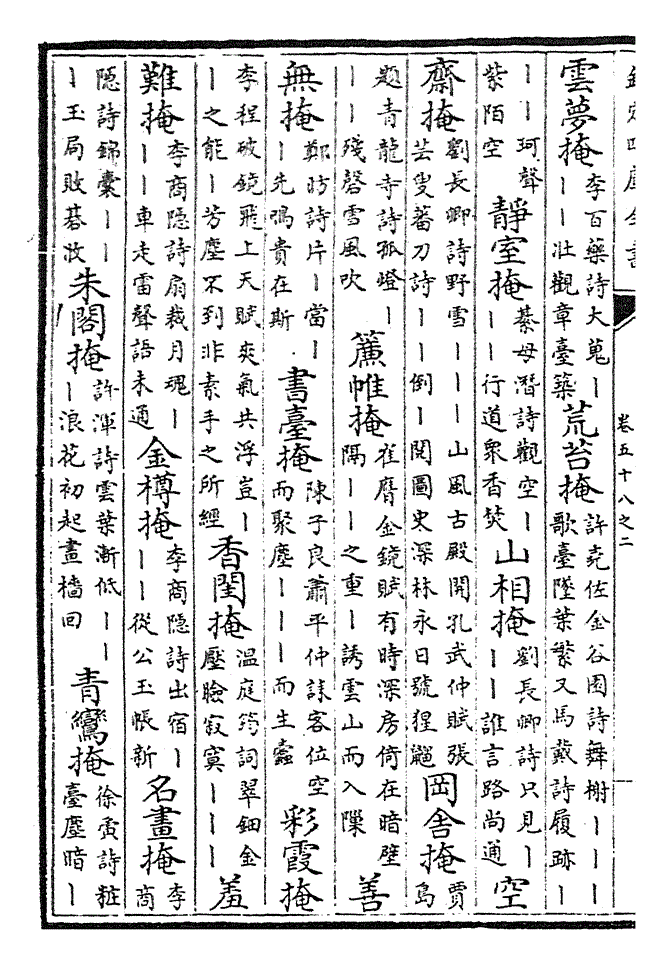 欽定四庫全書
卷五十八之二
雲夢掩 李百藥詩大蒐丨丨丨壯觀章臺築 荒苔掩 許堯佐金谷園詩舞榭丨丨丨歌臺墜葉繁又馬戴詩履跡丨
丨丨珂聲紫陌空 靜室掩 綦毋潛詩觀空丨丨丨行道衆香焚 山相掩 劉長卿詩只見丨丨丨誰言路尚通 空
齋掩 劉長卿詩野雪丨丨丨山風古殿開孔武仲賦張芸叟蕃刀詩丨丨倒丨閱圖史深林永日號猩鼯 岡舍掩 賈島
題青龍寺詩孤燈丨丨丨殘磬雪風吹 簾帷掩 崔膺金鏡賦有時深房倚在暗壁隔丨丨之重丨誘雲山而入隟 善
無掩 鄭昉詩片丨當丨丨先鴻貴在斯 書臺掩 陳子良蕭平仲誄客位空而聚塵丨丨丨而生蠹 彩霞掩
李程破鏡飛上天賦爽氣共浮豈丨丨之能丨芳塵不到非素手之所經 香閨掩 溫庭筠詞翠鈿金壓臉寂寞丨丨丨 羞
難掩 李商隱詩扇裁月魂丨丨丨車走雷聲語未通 金樽掩 李商隱詩出宿丨丨丨從公玉帳新 名畫掩 李商
隱詩錦囊丨丨丨玉局敗碁收 朱閣掩 許渾詩雲葉漸低丨丨丨浪花初起畫檣回 青鸞掩 徐夤詩粧臺塵暗丨